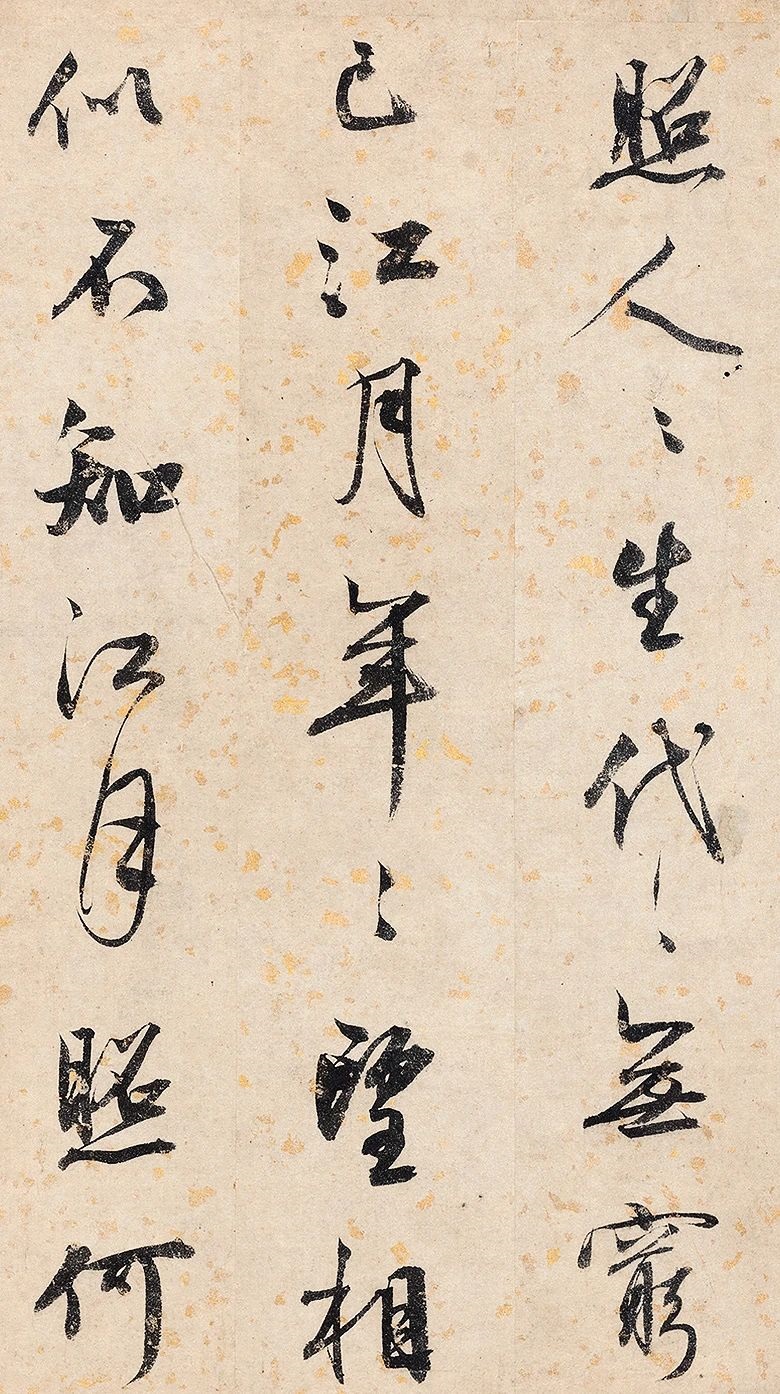 照人〻生代〻無窮
已江月年〻望相
似不知江月照何